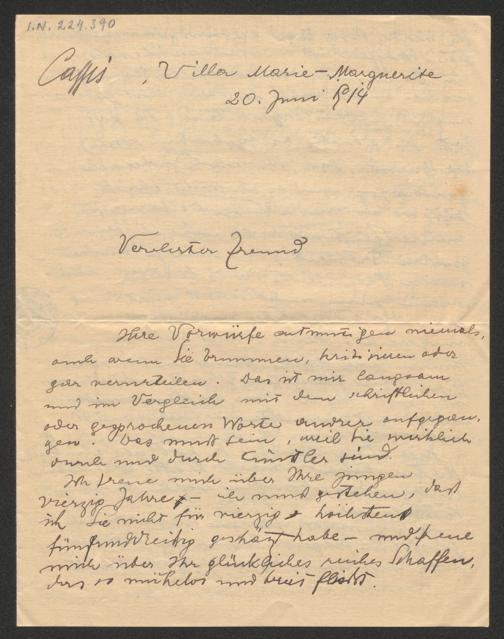 I.N. 224.390
Cassis, Villa Marie-Marguerite
20. Juni 14
Verehrter Freund
Ihre Vorwürfe entmutigen niemals,
auch wenn Sie brummen, kritisieren oder
gar verurteilen. Das ist mir langsam
und im Vergleich mit dem schriftlichen
oder gesprochenen Worte andrer aufgegan-
gen. Das muß sein, weil Sie wirklich
durch und durch Künstler sind.
Ich freue mich über Ihre jungen
vierzig Jahre, – ich muß gestehen, daß
ich Sie nicht für vierzig, höchstens
fünfunddreißig geschätzt habe – und freue
mich über Ihr glückliches reiches Schaffen,
das so mühelos und breit fließt.